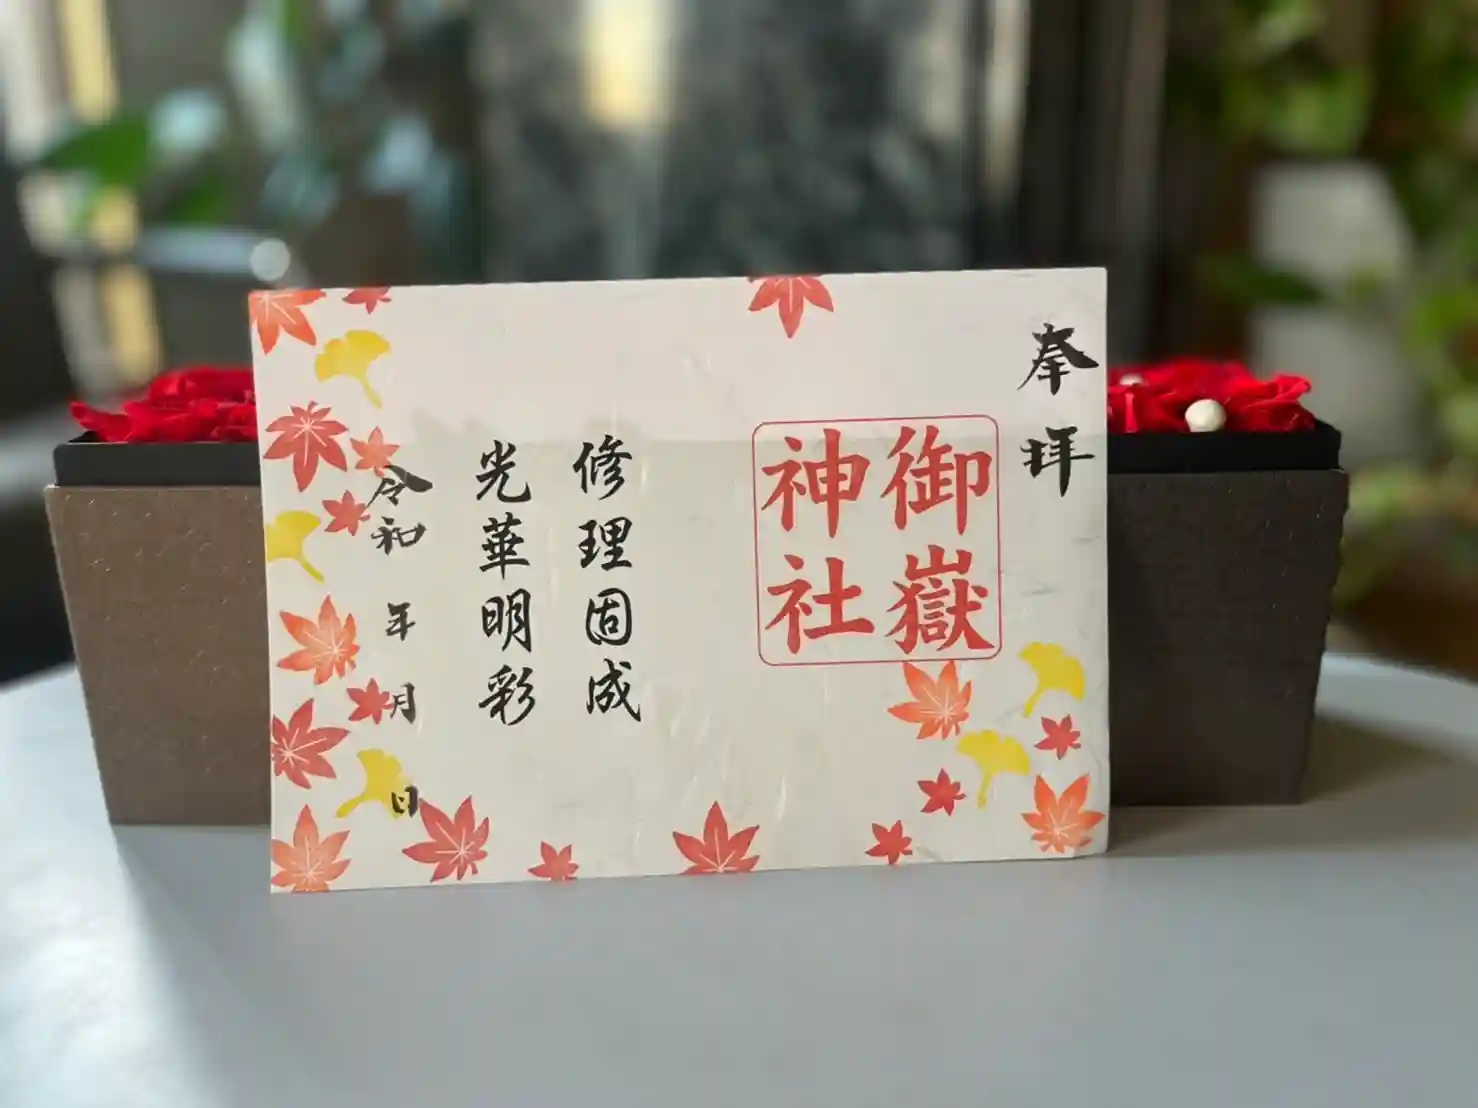 奉拝
御嶽
神社
修理固成
光華明彩
令和 年 月 日